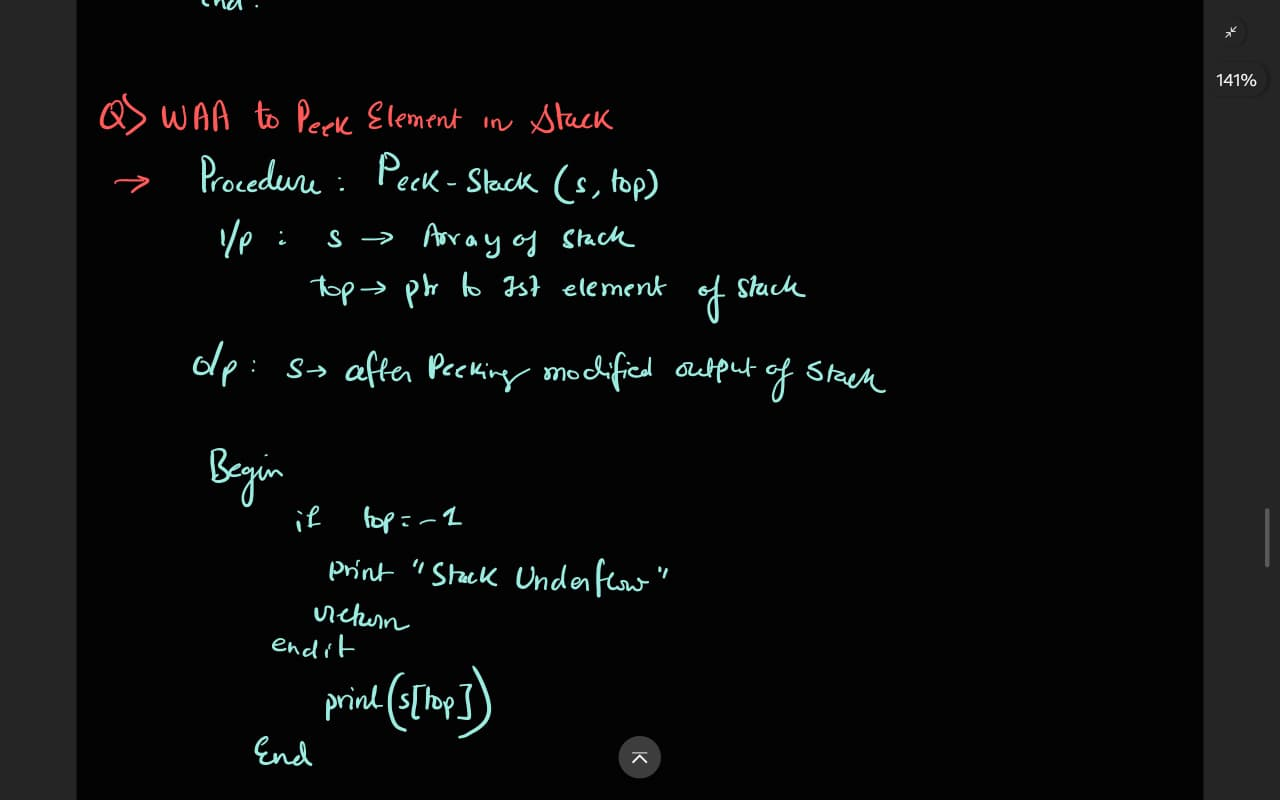 end.
141%
Q> WAA to Peek Element in Stack
→ Procedure : Peek-Stack (s, top)
I/p : s → Array of stack
top → ptr to 1st element of stack
o/p : s → after Peeking modified output of stack
Begin
if top = -1
print "Stack Underflow"
return
endif
print(s[top])
End